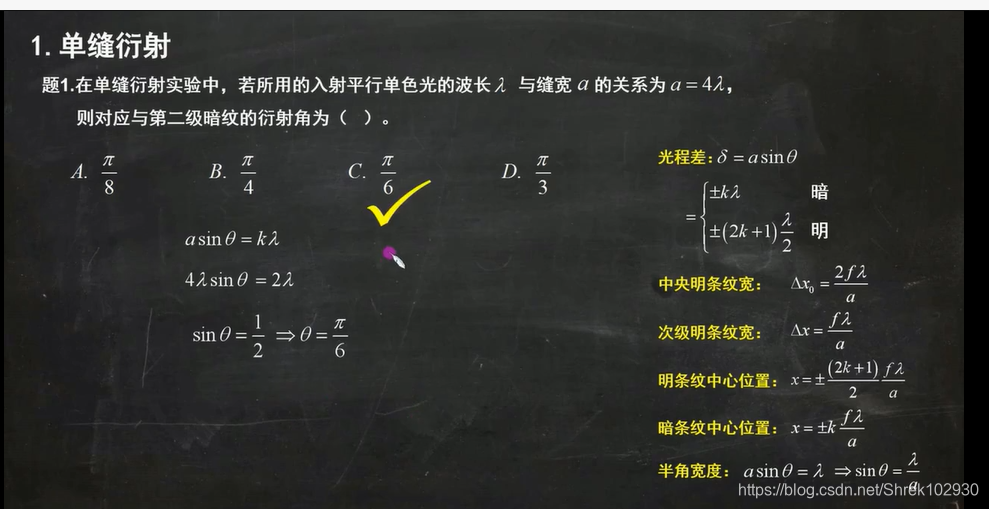 1. 单缝衍射
题1.在单缝衍射实验中，若所用的入射平行单色光的波长 λ 与缝宽 a 的关系为 a = 4λ，
则对应与第二级暗纹的衍射角为（ ）。
A. π/8 B. π/4 C. π/6 D. π/3
a sin θ = kλ
4λ sin θ = 2λ
sin θ = 1/2 ⇒ θ = π/6
光程差: δ = a sin θ
= { ±kλ 暗
±(2k+1) λ/2 明
中央明条纹宽： Δx₀ = 2fλ/a
次级明条纹宽： Δx = fλ/a
明条纹中心位置： x = ± (2k+1)/2 fλ/a
暗条纹中心位置： x = ±k fλ/a
半角宽度： a sin θ = λ ⇒ sin θ = λ/a
https://blog.csdn.net/Shrek102930